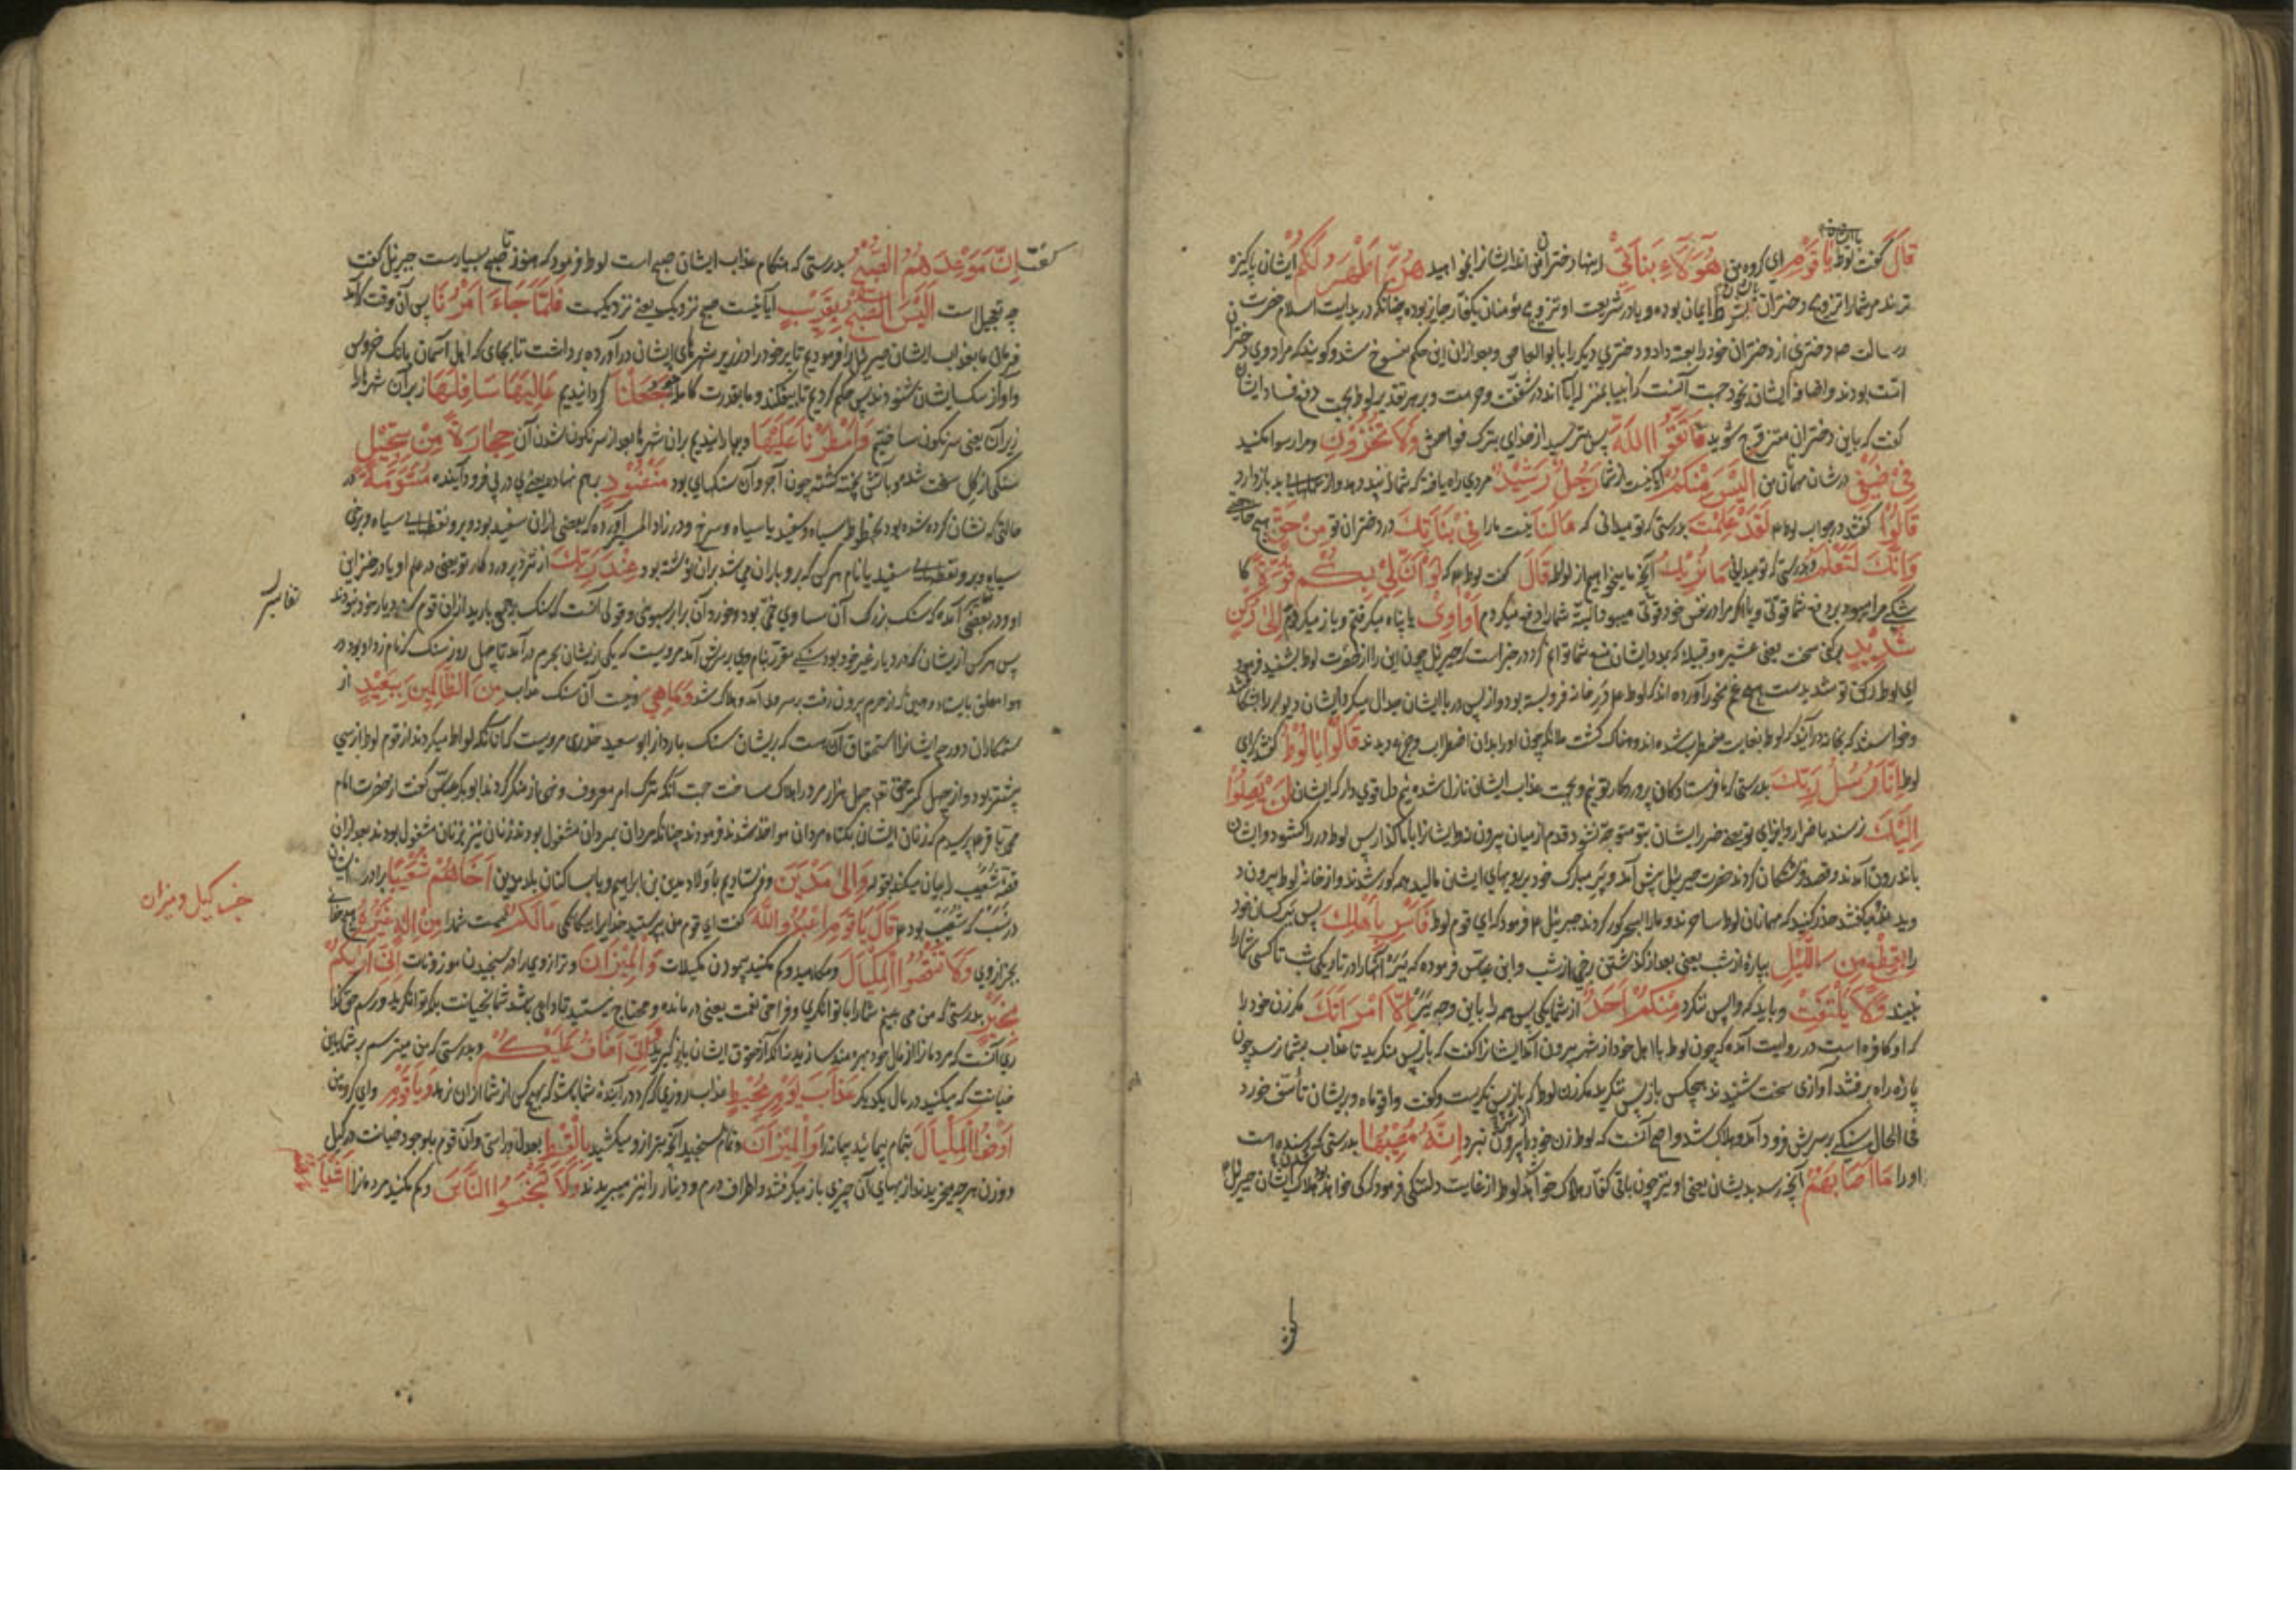 قَالَ گفت لوط يَا قَوْمِ ای گروه من هٰٓؤُلَآءِ بَنَاتِيْ اینها دختران من اند ایشانرا بخواهید هُنَّ اَطْهَرُ لَكُمْ ایشان پاکیزه
ترند مر شما را تزویج دختران بشرط ایمان بوده و یا در شریعت او تزویج مؤمنان بکفار جایز بوده چنانکه در بدایت اسلام حضرت
رسالت ص دختری از دختران خود را بعتبه داد و دختری دیگر را بابو العاص و بعد ازان این حکم منسوخ شد و گویند که مراد وی دختران
امت بودند و اضافه ایشان بخود جهت آنست که انبیا بمنزله آبا اند در شفقت و حرمت و بر هر تقدیر لوط بجهت دفع فساد ایشان
گفت که باین دختران متزوج شوید فَاتَّقُوا اللّٰهَ پس بترسید از خدای بترک فواحش وَلَا تُخْزُوْنِ و مرا رسوا مکنید
فِيْ ضَيْفِيْ در شان مهمانان من اَلَيْسَ مِنْكُمْ آیا نیست از شما رَجُلٌ رَشِيْدٌ مردی راه یافته که شما را پند دهد و از عمل بد باز دارد
قَالُوْا گفتند در جواب لوط ع لَقَدْ عَلِمْتَ بدرستی که تو میدانی که مَا لَنَا نیست ما را فِيْ بَنَاتِكَ در دختران تو مِنْ حَقٍّ هیچ حاجتی
وَاِنَّكَ لَتَعْلَمُ و بدرستی که تو میدانی مَا نُرِيْدُ آنچه ما میخواهیم از لواطه قَالَ گفت لوط ع که لَوْ اَنَّ لِيْ بِكُمْ قُوَّةً کا
شکی مرا میبود بر دفع شما قوتی و یا اگر مرا در نفس خود قوتی میبود البته شما را دفع میکردم اَوْ اٰوِيْ یا پناه میگرفتم و باز میگردم اِلٰى رُكْنٍ
شَدِيْدٍ برکنی سخت یعنی عشیره و قبیله که بمدد ایشان منع شما توانم کرد در خبر است که جبرئیل چون این را از حضرت لوط بشنید فرمود
ای لوط رکن تو شدیدست هیچ غم مخور آورده اند که لوط ع در خانه فرو بسته بود و از پس در با ایشان جدال میکرد ایشان دیوار را بشکافتند
و خواستند که بخانه درآیند لوط بغایت مضطرب شده اندوهناک گشت ملائکه چون او را بدان اضطراب و حزن دیدند قَالُوْا يَا لُوْطُ گفتند ای
لوط اِنَّا رُسُلُ رَبِّكَ بدرستی که ما فرستادگان پروردگار توئیم و بجهت عذاب ایشان نازل شده‌ایم دل قوی دار که ایشان لَنْ يَصِلُوْا
اِلَيْكَ نرسند باضرار و ایذای تو یعنی ضرر ایشان بتو متوجه نشود قدم از میان بیرون نه و ایشانرا با ما گذار پس لوط در را گشود و ایشان
باندرون آمدند و قصد فرشتگان کردند حضرت جبرئیل پیش آمد و پر مبارک خود بر رویهای ایشان مالید همه کور شدند و از خانه لوط بیرون د
ویدند و میگفتند حذر کنید که مهمانان لوط ساحرند و ما را بسحر کور کردند جبرئیل ع فرمود که ای قوم لوط فَاَسْرِ بِاَهْلِكَ پس ببر کسان خود
را بِقِطْعٍ مِنَ اللَّيْلِ بپاره از شب یعنی بعد از گذشتن برخی از شب و ابن عباس فرموده که ببر آنها را در تاریکی شب تا کسی شما را
نبیند وَلَا يَلْتَفِتْ و باید که واپس ننگرد مِنْكُمْ اَحَدٌ از شما یکی پس همه را باین وجه ببر اِلَّا امْرَاَتَكَ مگر زن خود را
که او کافره است در روایت آمده که چون لوط با اهل خود از شهر بیرون آمد ایشانرا گفت که باز پس منگرید تا عذاب بشما نرسد چون
پاره راه برفتند آوازی سخت شنیدند هیچکس باز پس ننگرید مگر زن لوط که باز پس نگریست و گفت واقوماه و بر ایشان تأسف خورد
فی الحال سنگی بر سرش فرود آمد و هلاک شد و اصح آنست که لوط زن خود را بیرون نبرد اِنَّهٗ مُصِيْبُهَا بدرستی که رسنده است
او را مَا اَصَابَهُمْ آنچه رسد بدیشان یعنی او نیز چون باقی کفار هلاک خواهد شد لوط از غایت دلتنگی فرمود که کی خواهد بود هلاک ایشان جبرئیل ع
گفت اِنَّ مَوْعِدَهُمُ الصُّبْحُ بدرستی که هنگام عذاب ایشان صبح است لوط فرمود که هنوز تا صبح بسیارست جبرئیل گفت
چه تعجیل است اَلَيْسَ الصُّبْحُ بِقَرِيْبٍ آیا نیست صبح نزدیک یعنی نزدیکست فَلَمَّا جَاءَ اَمْرُنَا پس آن وقت که آمد
فرمان ما بعذاب ایشان جبرئیل را فرمودیم تا پر خود را در زیر شهرهای ایشان درآورده برداشت تا بجای که اهل آسمان بانگ خروس
و آواز سگ ایشان شنودند پس حکم کردیم تا بیفکند و ما بقدرت کامله جَعَلْنَا گردانیدیم عَالِيَهَا سَافِلَهَا زبر آن شهرها را
زیر آن یعنی سرنگون ساختیم وَاَمْطَرْنَا عَلَيْهَا و ببارانیدیم بران شهرها بعد از سرنگون شدن آن حِجَارَةً مِنْ سِجِّيْلٍ
سنگی از گل سخت شده و بآتش پخته گشته چون آجر و آن سنگهای بود مَنْضُوْدٍ بر هم نهاده یعنی پی در پی فرود آینده مُسَوَّمَةً در
حالتی که نشان کرده شده بود بخطوط سیاه و سفید یا سیاه و سرخ و در زاد المسیر آورده که بعضی ازان سفید بود و برو نقطهای سیاه و برخی
سیاه و برو نقطهای سفید یا نام هر کس که برو باران می‌شد بران نوشته بود عِنْدَ رَبِّكَ از نزد پروردگار تو یعنی در علم او یا در خزاین
او و در بعضی آمده که سنگ بزرگ آن مساوی خمی بود و خورد آن برابر سبوئی و قولی آنست که سنگ بر جمعی بارید ازان قوم که در دیار خود نبودند
تفاسیر
پس هر کس از ایشان که در دیار غیر خود بود سنگی مقرر بنام وی بر سرش آمد مرویست که یکی از ایشان بحرم درآمد تا چهل روز سنگ که نام زد او بود در
هوا معلق بایستاد و حینی که از حرم بیرون رفت بر سر وی آمد و هلاک شد وَمَا هِيَ و نیست آن سنگ عذاب مِنَ الظَّالِمِيْنَ بِبَعِيْدٍ از
ستمکاران دور چه ایشانرا استحقاق آن هست که بریشان سنگ بارد از ابو سعید خدری مرویست که آنانکه لواط میکردند از قوم لوط از سی
بیشتر بود و از چهل کمتر حق تعالی چهل هزار مرد را هلاک ساخت جهت آنکه ترک امر معروف و نهی از منکر کردند ابو بکر عیاش گفت از حضرت امام
محمد باقر ع پرسیدم که زنان ایشان بگناه مردان مواخذ شدند فرمودند چنانکه مردان بمردان مشغول بودند زنان نیز بزنان مشغول بودند بعد ازان
قصه شعیب را بیان میکند بقوله وَاِلٰى مَدْيَنَ و فرستادیم باولاد مدین بن ابراهیم و یا بساکنان بلد مدین اَخَاهُمْ شُعَيْبًا برادر ایشان
در نسب که شعیب بود ع قَالَ يَا قَوْمِ اعْبُدُوا اللّٰهَ گفت ای قوم من بپرستید خدایرا بیگانگی مَا لَكُمْ نیست شما را مِنْ اِلٰهٍ غَيْرُهٗ هیچ خدائی
خبث کیل و میزان
بجز از وی وَلَا تَنْقُصُوا الْمِكْيَالَ و مکاهید و کم مکنید پیمودن مکیلات وَالْمِيْزَانَ و ترازوی را در سنجیدن موزونات اِنِّيْ اَرٰىكُمْ
بِخَيْرٍ بدرستی که من می بینم شما را با توانگری و فراخی نعمت یعنی درمانده و محتاج نیستید
وَاِنِّيْ اَخَافُ عَلَيْكُمْ و بدرستی که من میترسم بر شما باین
خیانت که میکنید در مال یکدیگر عَذَابَ يَوْمٍ مُحِيْطٍ عذاب روزی که گرد درآینده شما باشد که هیچ کس از شما ازان نرهد وَيَا قَوْمِ و ای گروه من
اَوْفُوا الْمِكْيَالَ بتمام پیمائید پیمانه را وَالْمِيْزَانَ و تمام بسنجید آنچه بترازو میکشید بِالْقِسْطِ بعدل و راستی و آن قوم باوجود خیانت در کیل
و وزن هر چه میخریدند از بهای آن چیزی باز میگرفتند و اطراف درم و دینار را نیز میبریدند وَلَا تَبْخَسُوا النَّاسَ و کم مکنید مردمانرا اَشْيَاءَهُمْ